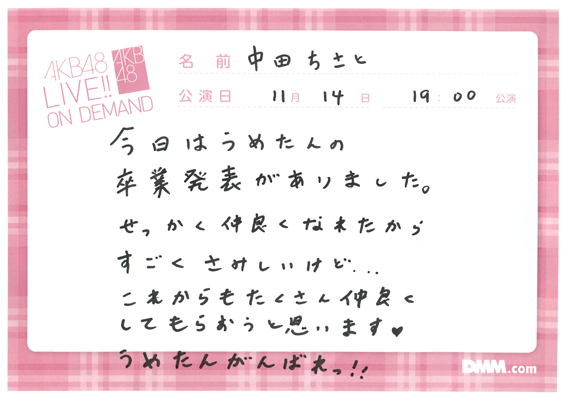 AKB48
LIVE!!
ON DEMAND
AKB
48
名前 中田ちさと
公演日 11月 14日 19:00 公演
今日はうめたんの
卒業発表がありました。
せっかく仲良くなれたから
すごくさみしいけど...
これからもたくさん仲良く
してもらおうと思います♥
うめたんがんばれっ!!
DMM.com